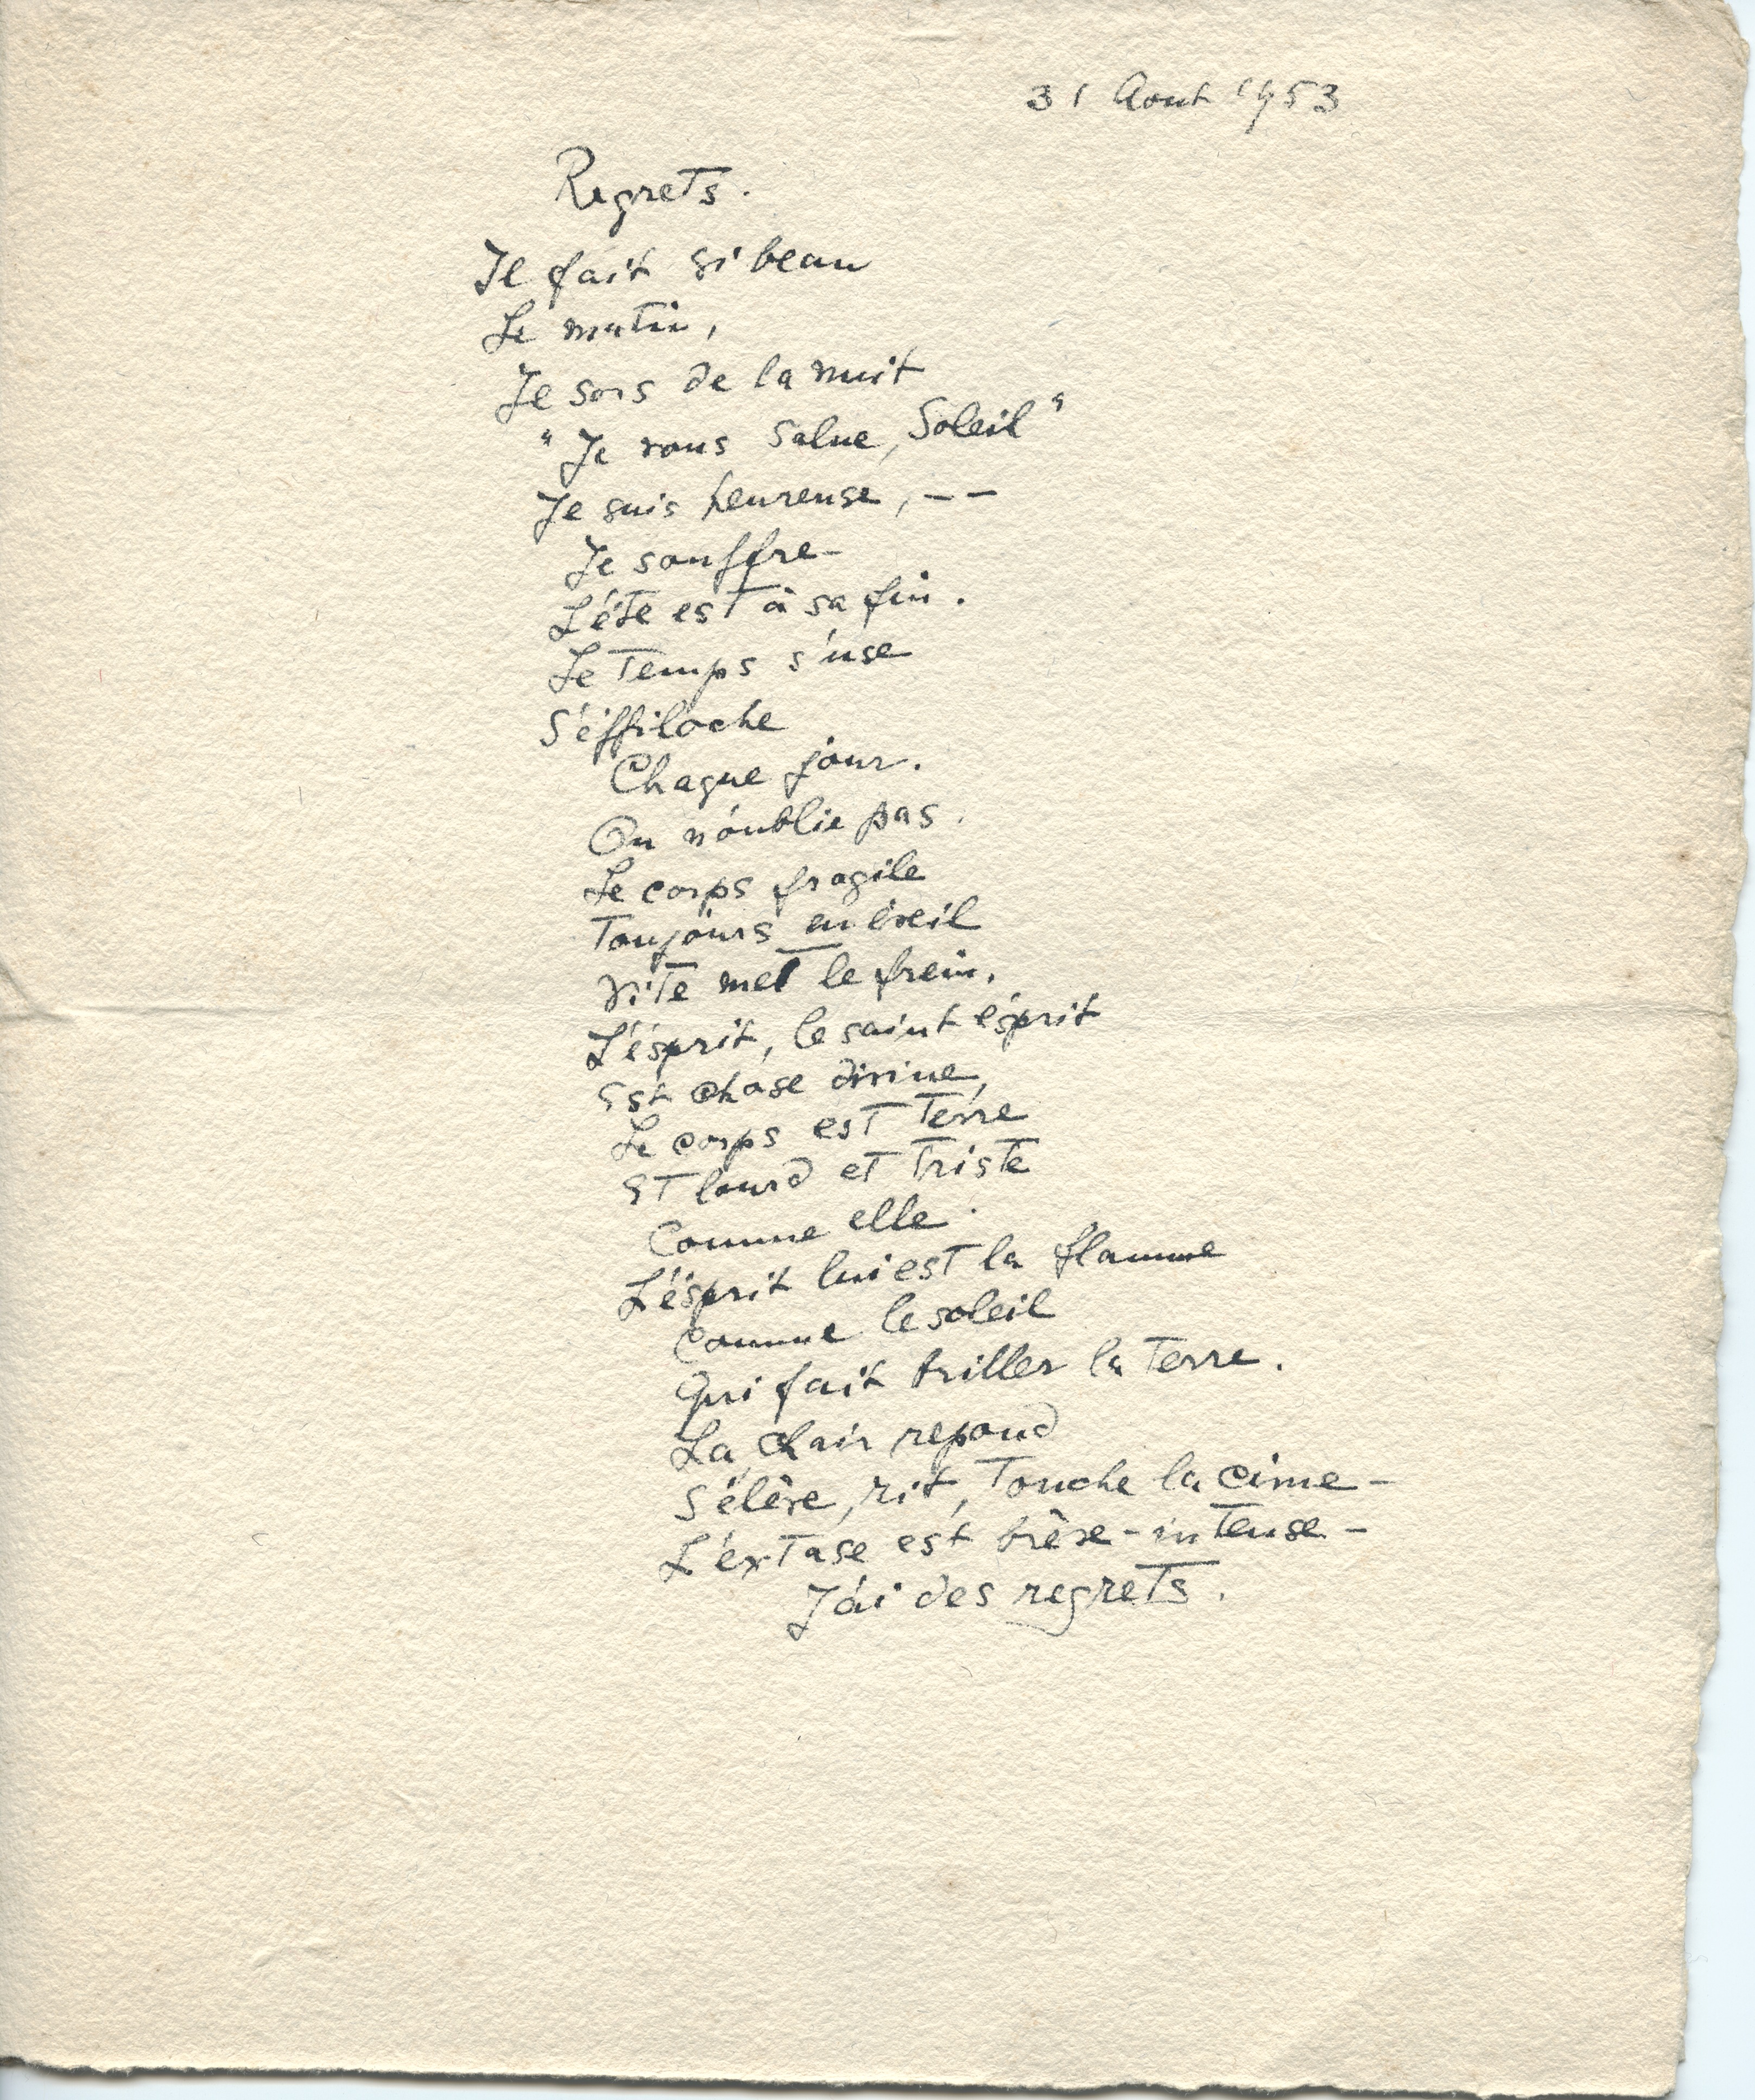 31 Aout 1953
Regrets.
Il fait si beau
Le matin,
Je sors de la nuit
"Je vous salue, Soleil"
Je suis heureuse, --
Je souffre-
L'éte est à sa fin.
Le Temps s'use
S'éffiloche
Chaque jour.
On n'oublie pas.
Le corps fragile
Toujours en éveil
Vite met le frein.
L'ésprit, le saint ésprit
Est chose divine,
Le corps est Terre
Et lourd et Triste
Comme elle.
L'ésprit lui est la flamme
Comme le soleil
Qui fait briller la Terre.
La chair repond
S'élève, rit, Touche la cime-
L'exTase est brève-intense-
J'ai des regrets.